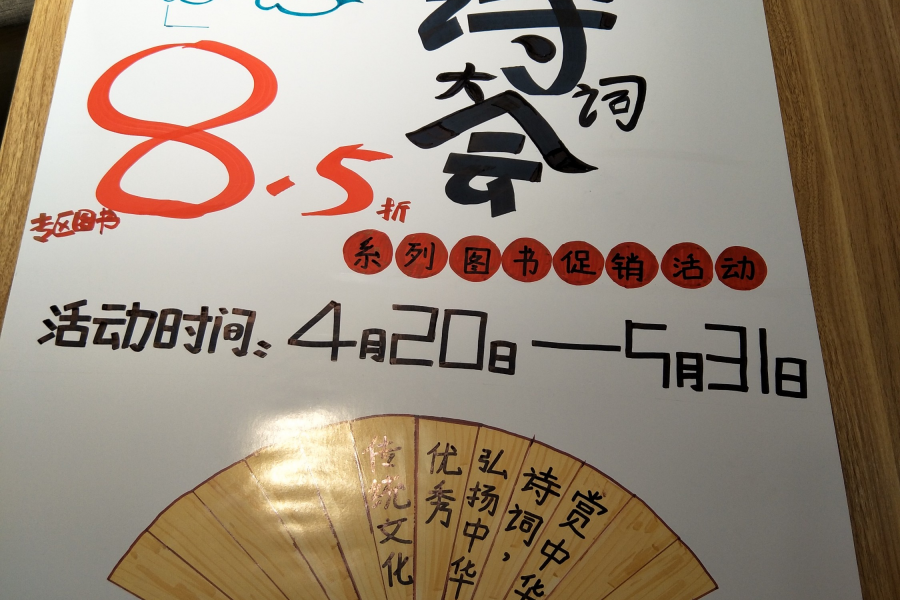 诗词
大会
8.5折
专区图书
系列图书促销活动
活动时间：4月20日—5月31日
赏中华
诗词，
弘扬中华
优秀
传统文化